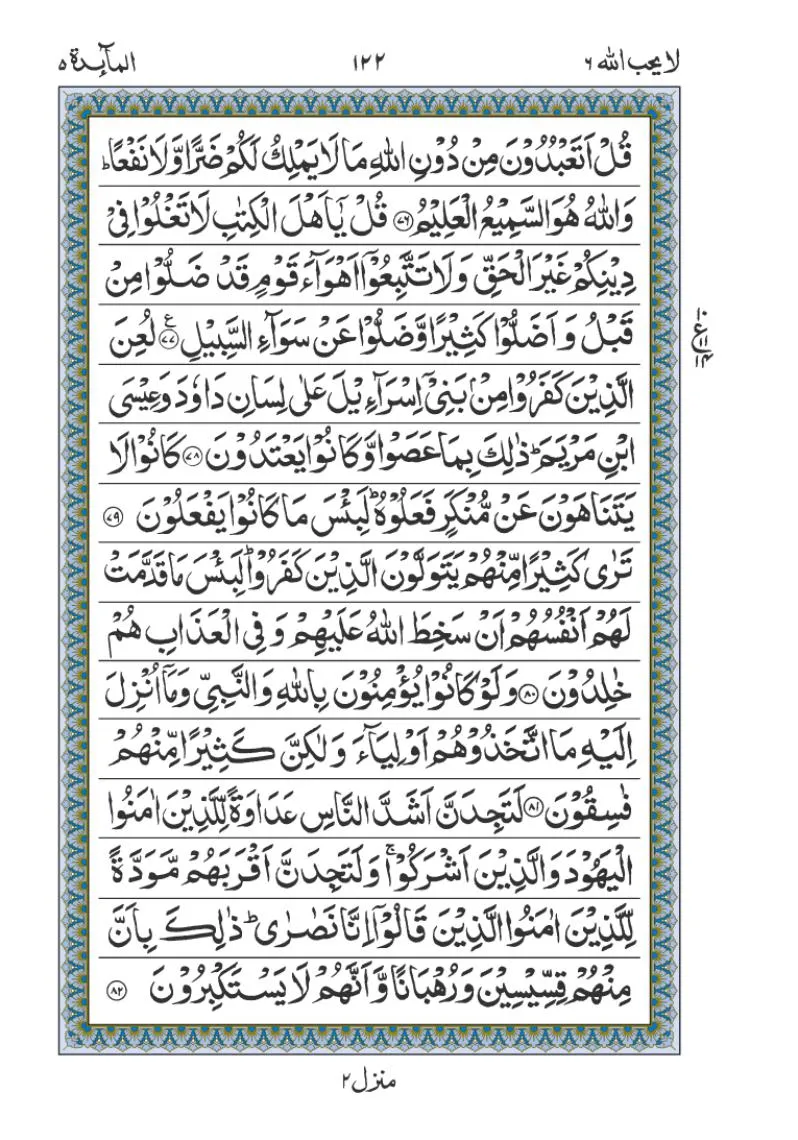 لا یحب الله ۶ ۱۲۲ المآىِٕدة ۵
قُلْ اَتَعْبُدُوْنَ مِنْ دُوْنِ اللّٰهِ مَا لَا یَمْلِكُ لَكُمْ ضَرًّا وَّلَا نَفْعًاؕ
وَاللّٰهُ هُوَ السَّمِیْعُ الْعَلِیْمُ ﴿۷۶﴾ قُلْ یٰۤاَهْلَ الْكِتٰبِ لَا تَغْلُوْا فِیْ
دِیْنِكُمْ غَیْرَ الْحَقِّ وَلَا تَتَّبِعُوْۤا اَهْوَآءَ قَوْمٍ قَدْ ضَلُّوْا مِنْ
قَبْلُ وَاَضَلُّوْا كَثِیْرًا وَّضَلُّوْا عَنْ سَوَآءِ السَّبِیْلِ ﴿۷۷﴾ ع لُعِنَ
الَّذِیْنَ كَفَرُوْا مِنْۢ بَنِیْۤ اِسْرَآءِیْلَ عَلٰی لِسَانِ دَاوٗدَ وَعِیْسَی
ابْنِ مَرْیَمَؕ ذٰلِكَ بِمَا عَصَوْا وَّكَانُوْا یَعْتَدُوْنَ ﴿۷۸﴾ كَانُوْا لَا
یَتَنَاهَوْنَ عَنْ مُّنْكَرٍ فَعَلُوْهُؕ لَبِئْسَ مَا كَانُوْا یَفْعَلُوْنَ ﴿۷۹﴾
تَرٰی كَثِیْرًا مِّنْهُمْ یَتَوَلَّوْنَ الَّذِیْنَ كَفَرُوْاؕ لَبِئْسَ مَا قَدَّمَتْ
لَهُمْ اَنْفُسُهُمْ اَنْ سَخِطَ اللّٰهُ عَلَیْهِمْ وَفِی الْعَذَابِ هُمْ
خٰلِدُوْنَ ﴿۸۰﴾ وَلَوْ كَانُوْا یُؤْمِنُوْنَ بِاللّٰهِ وَالنَّبِیِّ وَمَاۤ اُنْزِلَ
اِلَیْهِ مَا اتَّخَذُوْهُمْ اَوْلِیَآءَ وَلٰكِنَّ كَثِیْرًا مِّنْهُمْ
فٰسِقُوْنَ ﴿۸۱﴾ لَتَجِدَنَّ اَشَدَّ النَّاسِ عَدَاوَةً لِّلَّذِیْنَ اٰمَنُوا
الْیَهُوْدَ وَالَّذِیْنَ اَشْرَكُوْاۚ وَلَتَجِدَنَّ اَقْرَبَهُمْ مَّوَدَّةً
لِّلَّذِیْنَ اٰمَنُوا الَّذِیْنَ قَالُوْۤا اِنَّا نَصٰرٰیؕ ذٰلِكَ بِاَنَّ
مِنْهُمْ قِسِّیْسِیْنَ وَرُهْبَانًا وَّاَنَّهُمْ لَا یَسْتَكْبِرُوْنَ ﴿۸۲﴾
منزل ۲